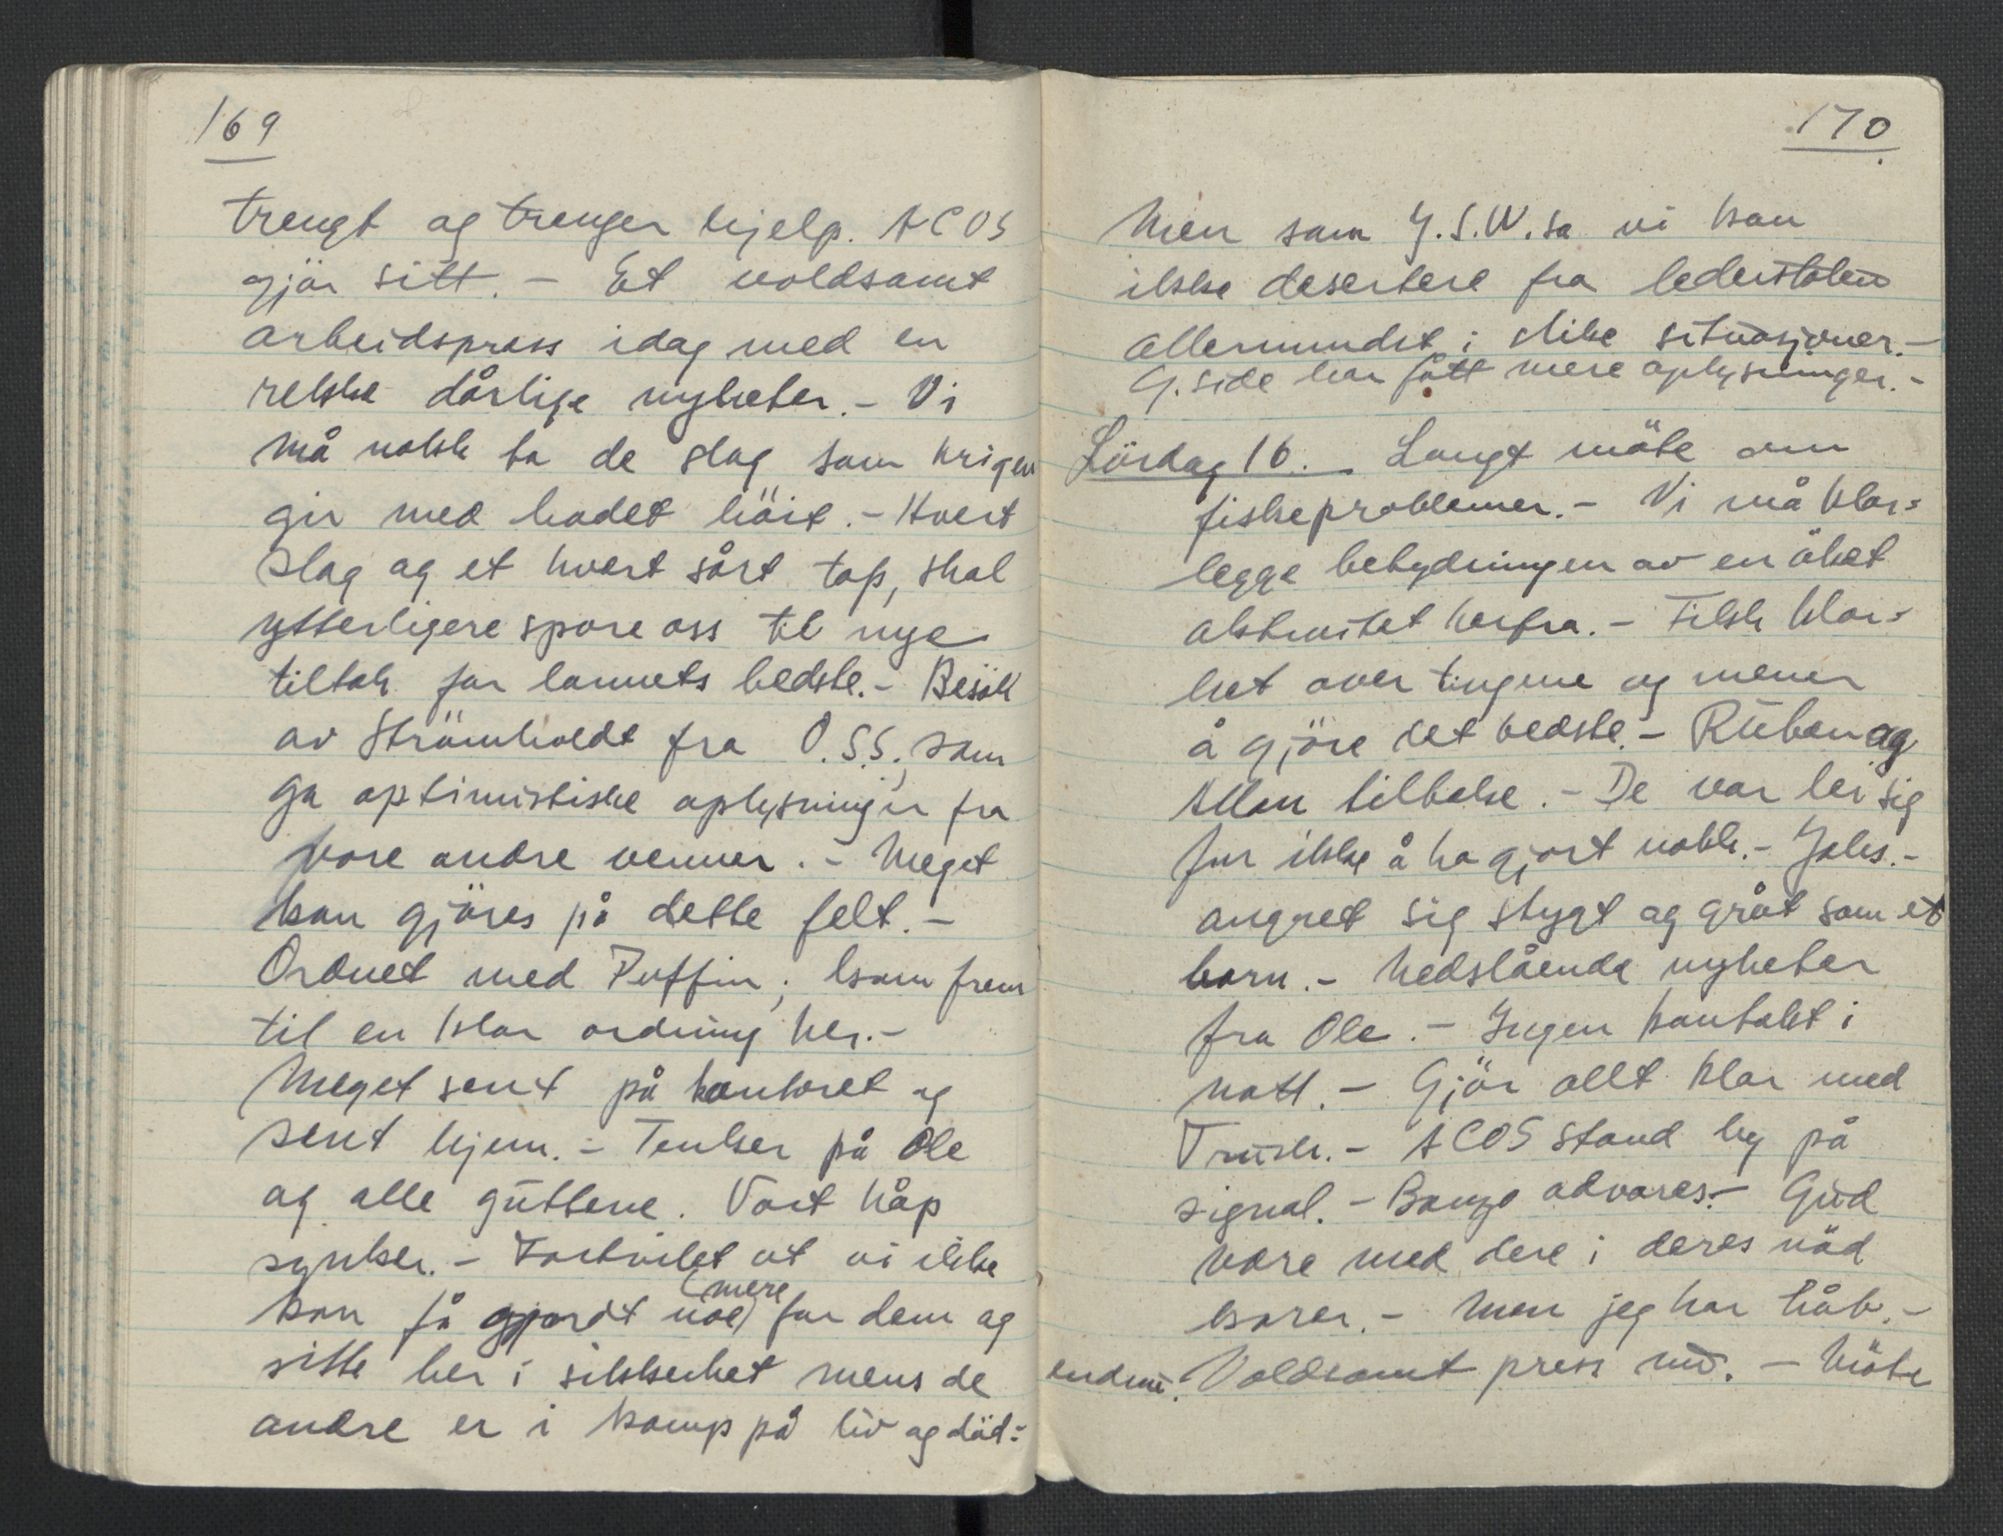 169
trengt og trenger hjelp. ACOS
gjör sitt. - Et voldsomt
arbeidspress idag med en
rekke dårlige nyheter. - Vi
må nokk ta de slag som krigen
gir med hodet höit. - Hvert
slag og et hvert sårt tap, skal
ytterligere spore oss til nye
tiltak for lannets bedste. - Besök
av Strömholdt fra O.S.S., som
ga optimistiske oplysninger fra
vore andre venner. - Meget
kan gjöres på dette felt. -
Ordnet med Puffin; kom frem
til en klar ordning her. -
Meget sent på kontoret og
sent hjem. - Tenker på Ole
og alle guttene. Vort håp
synker. - Fortvilet at vi ikke
kan få gjordt noe (mere) for dem og
sitte her i sikkerhet mens de
andre er i kamp på liv og död -
170
Men som J.S.W. sa vi kan
ikke desertere fra lederstolen
allermindst i slike situasjoner. -
G. side har fått mere oplysninger. -
Lördag 16. Langt möte om
fiskeproblemer. - Vi må klar=
legge betydningen av en öket
aktivitet herfra. - Fikk klar=
het over tingene og mener
å gjöre det bedste. - Rüben og
Allan tilbake. - De var lei sig
for ikke å ha gjort nokk. - Jak's. -
angret sig stygt og gråt som et
barn. - Nedslående nyheter
fra Ole. - Ingen kontakt i
natt. - Gjör allt klar med
Trush. - ACOS stand by på
signal. - Bonzo advares. - Gud
være med dere i deres nöd
karer. - Men jeg har håb. -
endnu. Voldsomt press nu. - Möte